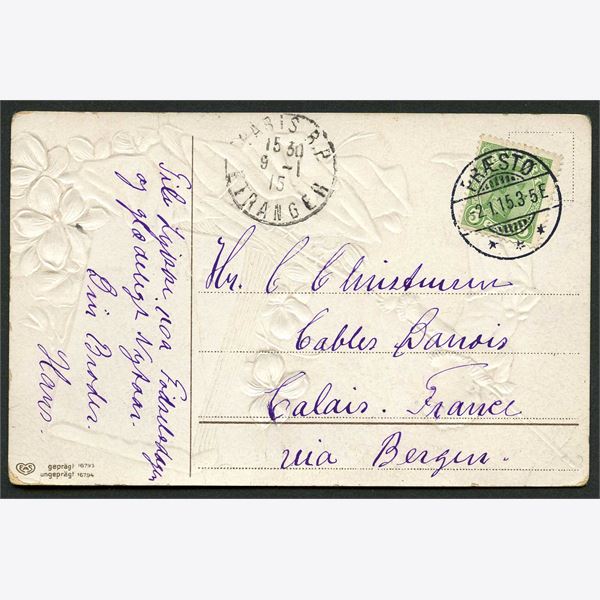 Til Lykke paa Fødselsdagen
og glædeligt Nytaar.
Din Broder
Hans
PARIS R.P.
15 30
9 -1
15
ETRANGER
PRÆSTØ
2.1.15.3-5F
Hr. C Christensen
Cables Danois
Calais. France
via Bergen.
EAS
geprägt 16793
ungeprägt 16794